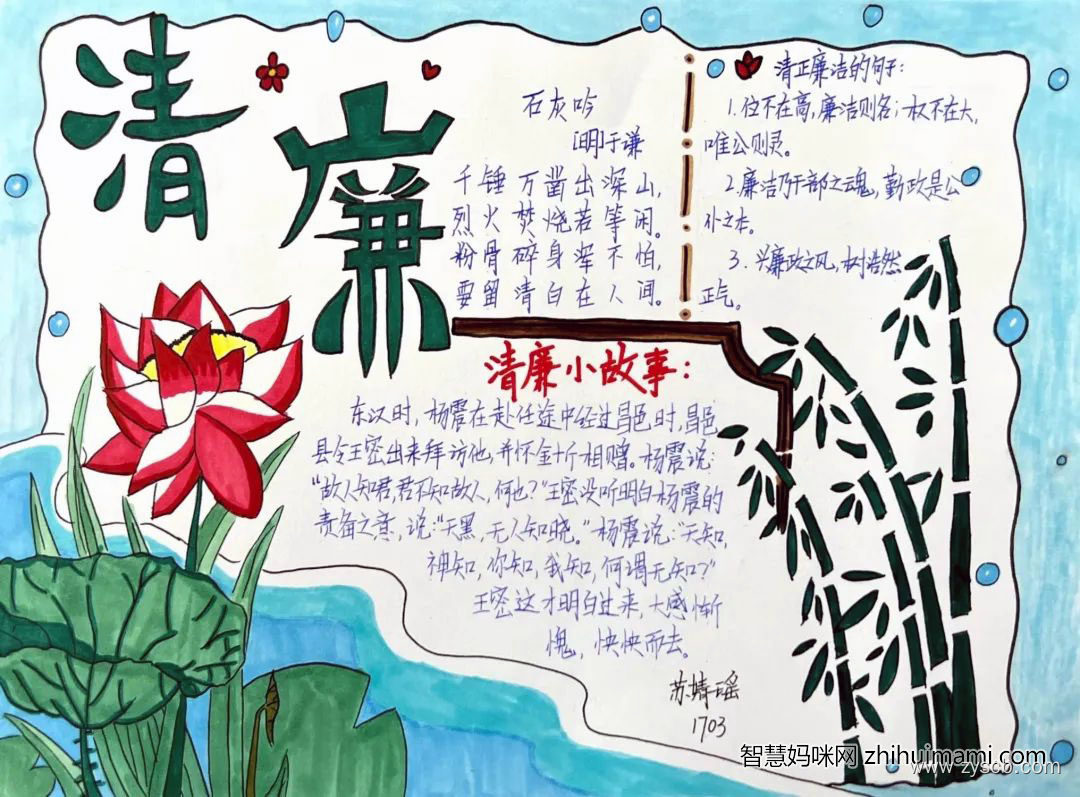 清廉
石灰吟
[明]于谦
千锤万凿出深山,
烈火焚烧若等闲。
粉骨碎身浑不怕,
要留清白在人间。
清正廉洁的句子:
1.位不在高,廉洁则名;权不在大,
唯公则灵。
2.廉洁乃干部之魂,勤政是公
仆之本。
3.兴廉政之风,树浩然
正气。
清廉小故事:
东汉时,杨震在赴任途中经过昌邑时,昌邑
县令王密出来拜访他,并怀金十斤相赠。杨震说:
“故人知君,君不知故人,何也?”王密没听明白杨震的
责备之意,说:“天黑,无人知晓。”杨震说:“天知,
神知,你知,我知,何谓无知?”
王密这才明白过来,大感惭
愧,怏怏而去。
苏婧瑶
1703
智慧妈咪网 zhihuimami.com
www.zyscb.com